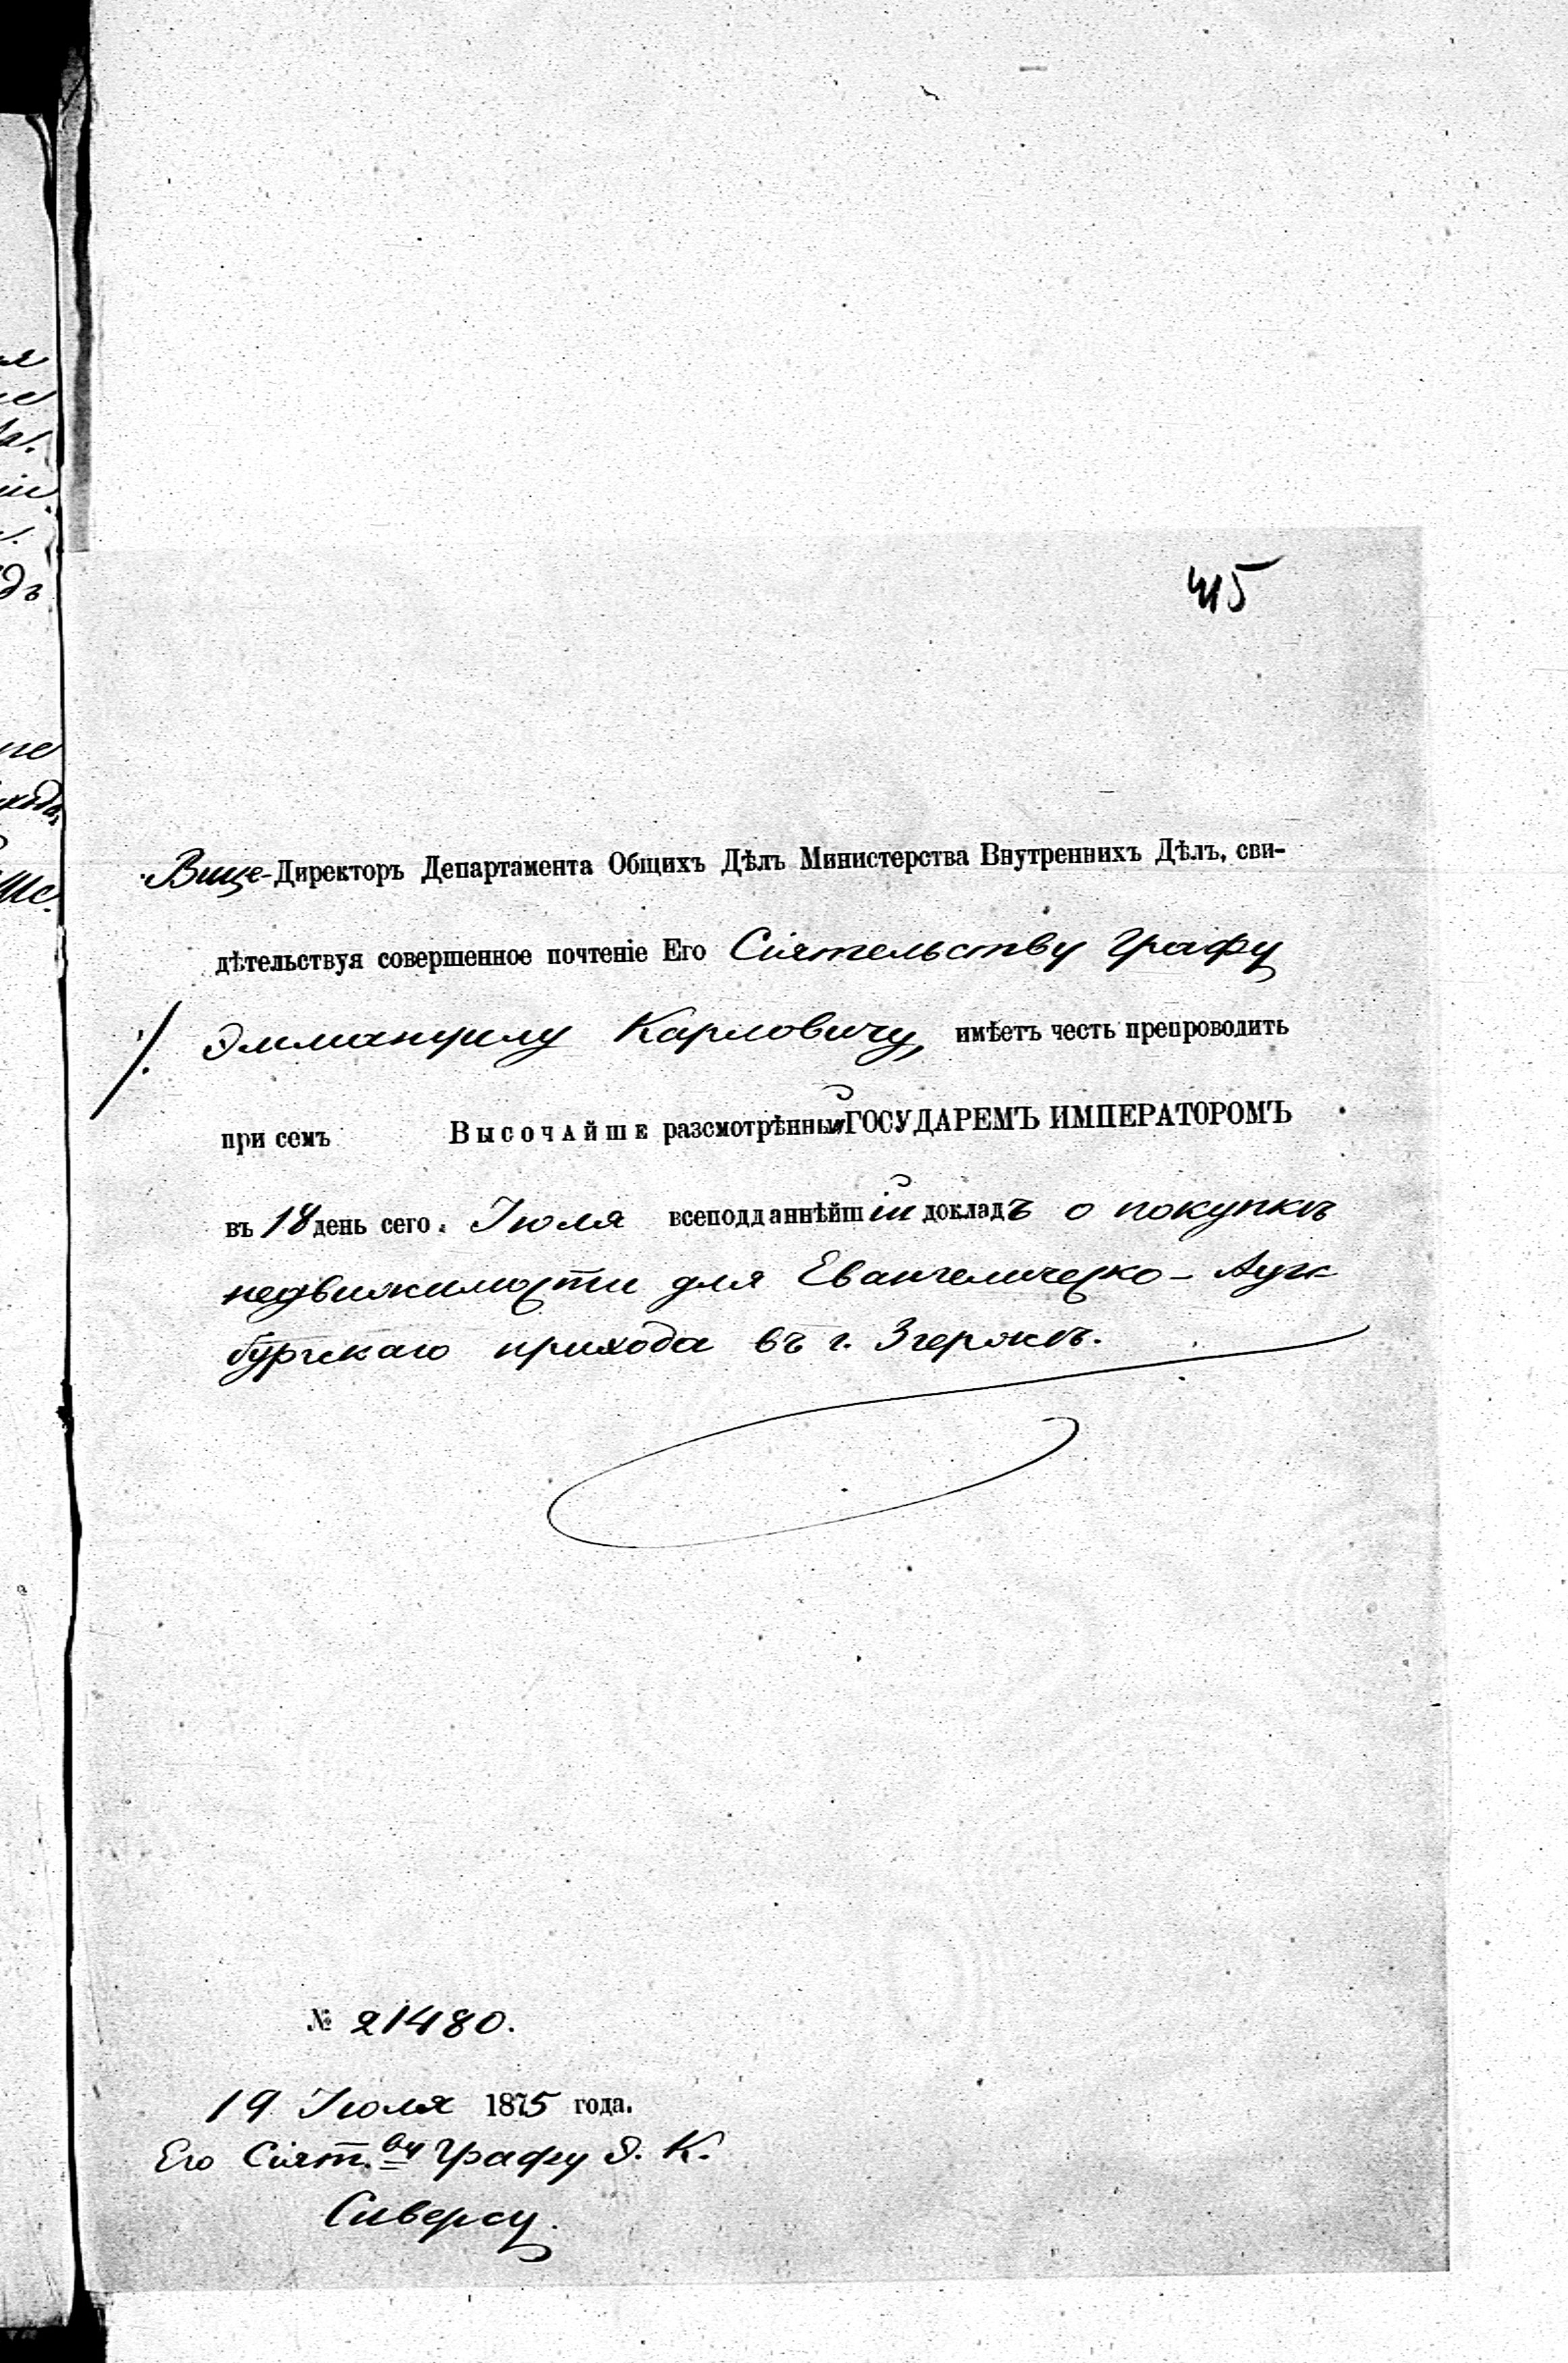 415
Вице-Директоръ Департамента Общихъ Дѣлъ Министерства Внутреннихъ Дѣлъ, сви-
дѣтельствуя совершенное почтеніе Его Сіятельству Графу
Эммануилу Карловичу, имѣетъ честь препроводить
при семъ Высочайше разсмотрѣнный ГОСУДАРЕМЪ ИМПЕРАТОРОМЪ
въ 18 день сего Іюля всеподданнѣйшій докладъ о покупкѣ
недвижимости для Евангелическо-Аугс
бургскаго прихода въ г. Згержѣ.
№ 21480.
19 Іюля 1875 года.
Его Сіят.ву Графу Э. К.
Сиверсу.